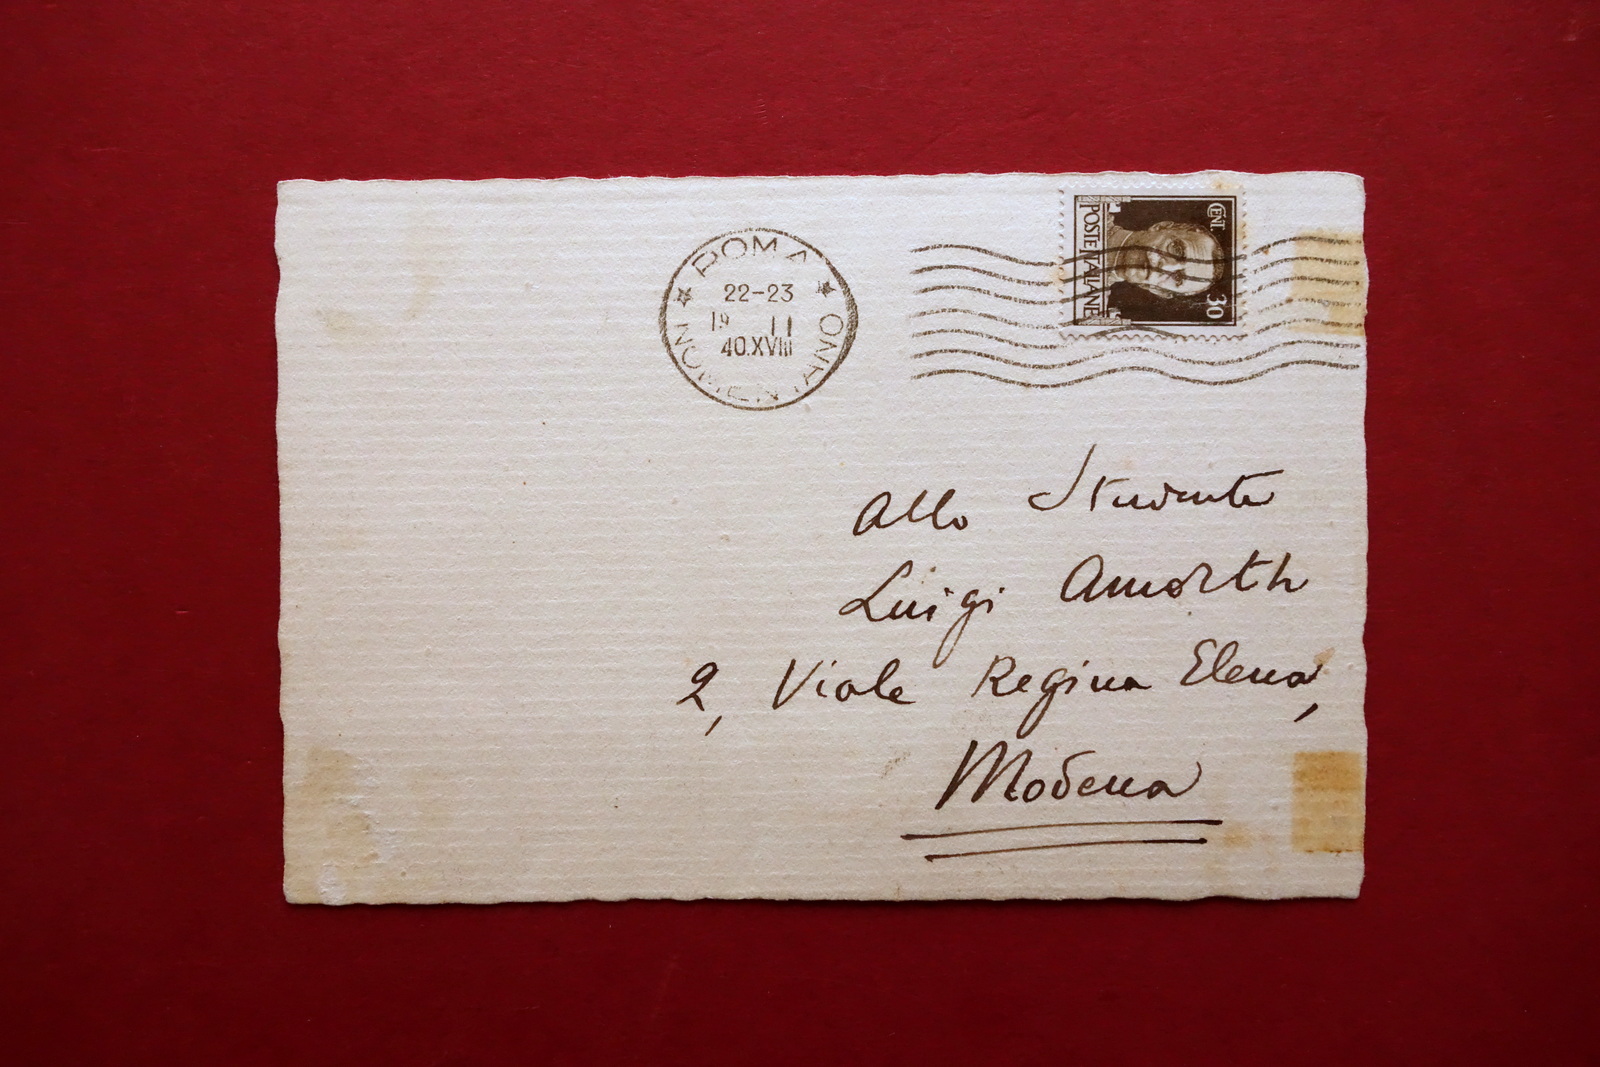 ROMA
22-23
19 II
40.XVIII
NOMENTANO
CENT. 30
POSTE ITALIANE
Allo Studente
Luigi Amorth
2, Viale Regina Elena,
Modena